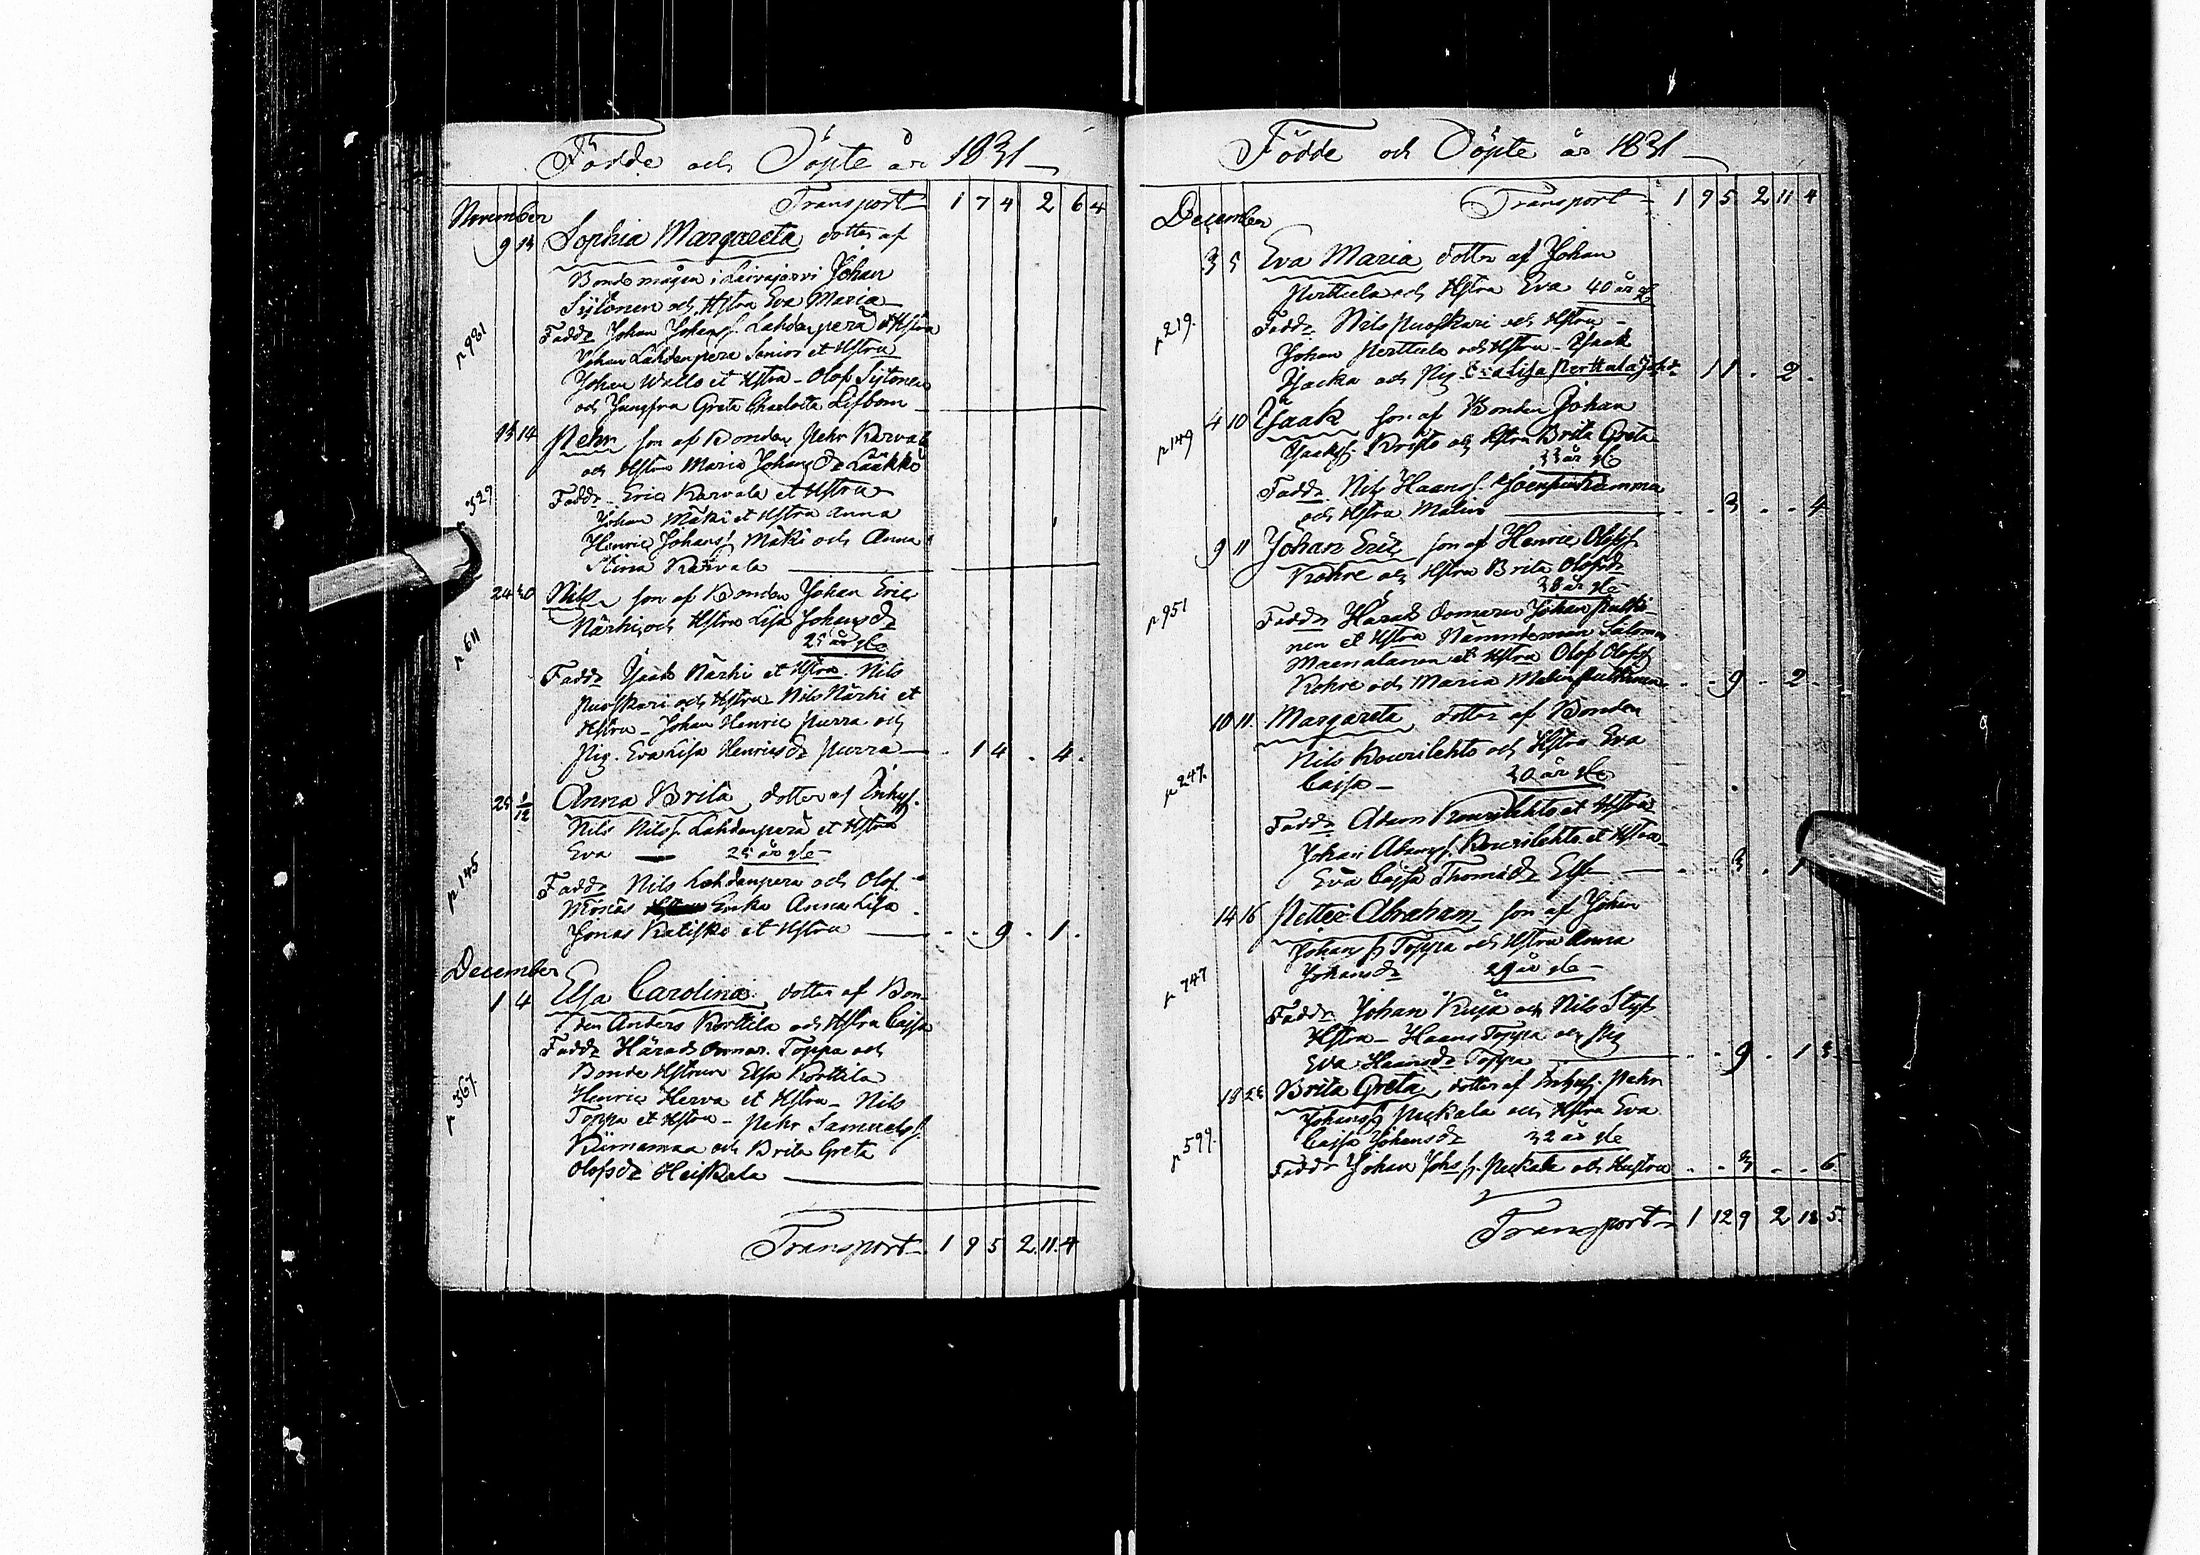 Födde och Döpte år 1831
Transport 1 7 4 2 6 4
November
9 13 Sophia Margareta dotter af
Bondemågen i Laivajärvi Johan
Sijtonen och Hstru Eva Maria
p 981
Fadd: Johan Johanss. Lahdenperä et Hstru
Johan Lahdenperä Senior et Hstru
Johan Wallo et Hstru - Olof Sijtonen
och Jungfru Greta Charlotta Lifbom
13 14 Pehr son af Bonden Pehr Karvala
och Hstru Maria Johans dr Laakko
p 329
Fadd: Eric Karvala et Hstru
Johan Mäki et Hstru Anna
Henric Johanss. Mäki och Anna
Stina Karvala
24 30 Nils son af Bonden Johan Eric
Närhi och Hstru Lisa Johans dr
25 år gl:
p 611
Fadd: Isaak Närhi et Hstru. Nils
Puoskari och Hstru Nils Närhi et
Hstru - Johan Henric Purra och
Pig. Eva Lisa Henrics dr Purra - 1 4 . 4 .
25 1/12 Anna Brita dotter af Inhys.
Nils Nilss. Lahdenperä et Hstru
Eva 25 år gl:
p 145
Fadd: Nils Lahdenperä och Olof
Erika Anna Lisa
Jonas Ratisko et Hstru . . 9 . 1 .
December
1 4 Elsa Carolina dotter af Bon-
den Anders Korttila och Hstru Cajsa
Fadd: Härads domar. Toppa och
p 367.
Bonde Hstrun Elsa Korttila
Henric Herva et Hstru - Nils
Toppa et Hstru - Pehr Samuelss.
Kiirnamaa och Brita Greta
Olofs dr Heiskala
Transport 1 9 5 2. 11. 4
Födde och Döpte år 1831
Transport 1 9 5 2 11 4
December
3 5 Eva Maria dotter af Johan
Perttula och Hstru Eva 40 år gl
p 219.
Fadd: Nils Puoskari och Hstru -
Johan Perttula och Hstru - Isaak
och Pig. Eva Lisa Perttula 1 1 . 2 .
4 10 Isaak son af Bonden Johan
p 149
Isaakss. Kristo och Hstru Brita Greta
33 år gl:
Fadd: Nils Haanss.
och Hstru Malin . . 3 . . 4
9 11 Johan Eric son af Henric Olofss.
Rohve och Hstru Brita Olofsdr
38 år gl:
p 951
Fadd: Härads domaren Johan Pulki-
nen et Hstru Nämndeman Salomon
et Hstru Olof Olofss.
Rohve och Maria Malin Pulkinen . . 9 . 2 .
10 11 Margareta dotter af Bonden
Nils Kourilehto och Hstru Eva
p 247.
Cajsa - 30 år gl:
Fadd: Adam Kourilehto et Hstru
Johan Adamss. Kourilehto et Hstru
Eva Cajsa Thomæ dr . . 3 . 1
14 16 Petter Abraham son af Johan
Johanss. Toppa och Hstru Anna
p 747
Johans dr 29 år gl: -
Fadd: Johan Ruja och Nils
Hstru - Haans Toppa och Pig
Eva Haans dr Toppa . . 9 . 1 3.
18 25 Brita Greta dotter af Inhys. Pehr
Johanss. Peckala och Hstru Eva
p 599.
Cajsa Johans dr 32 år gl:
Fadd: Johan Johss. Peckala och Hustru . . 3 . . 6.
Transport 1 12 9 2 13 5.